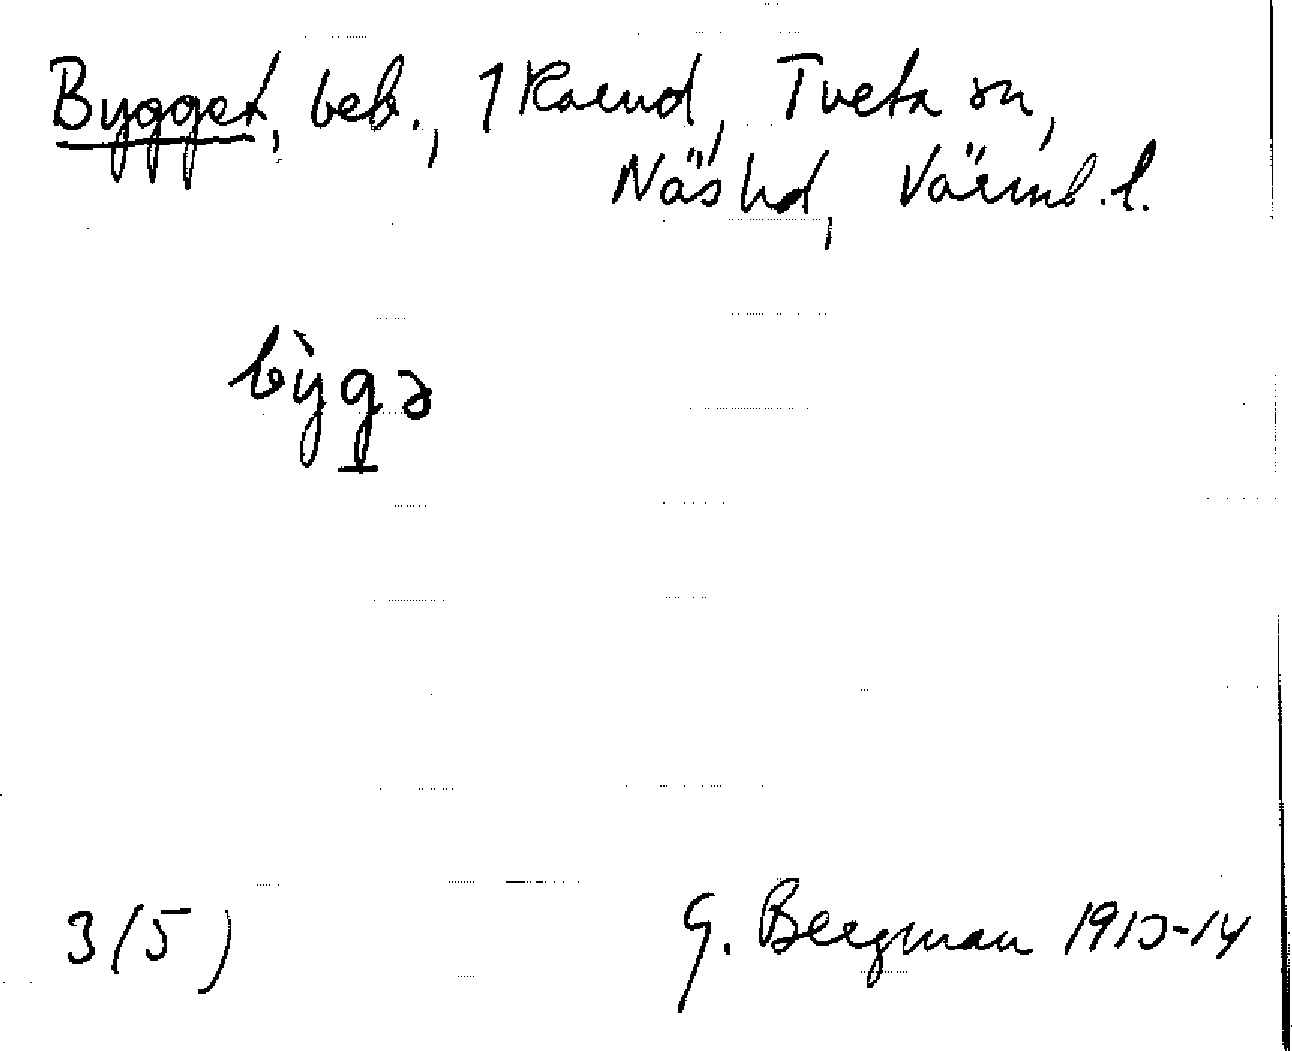 Bygget, beb., 1 Roend, Tveta sn,
Näs hd, Värml. l.
bỳgə
3 (5)
G. Bergman 1913-14